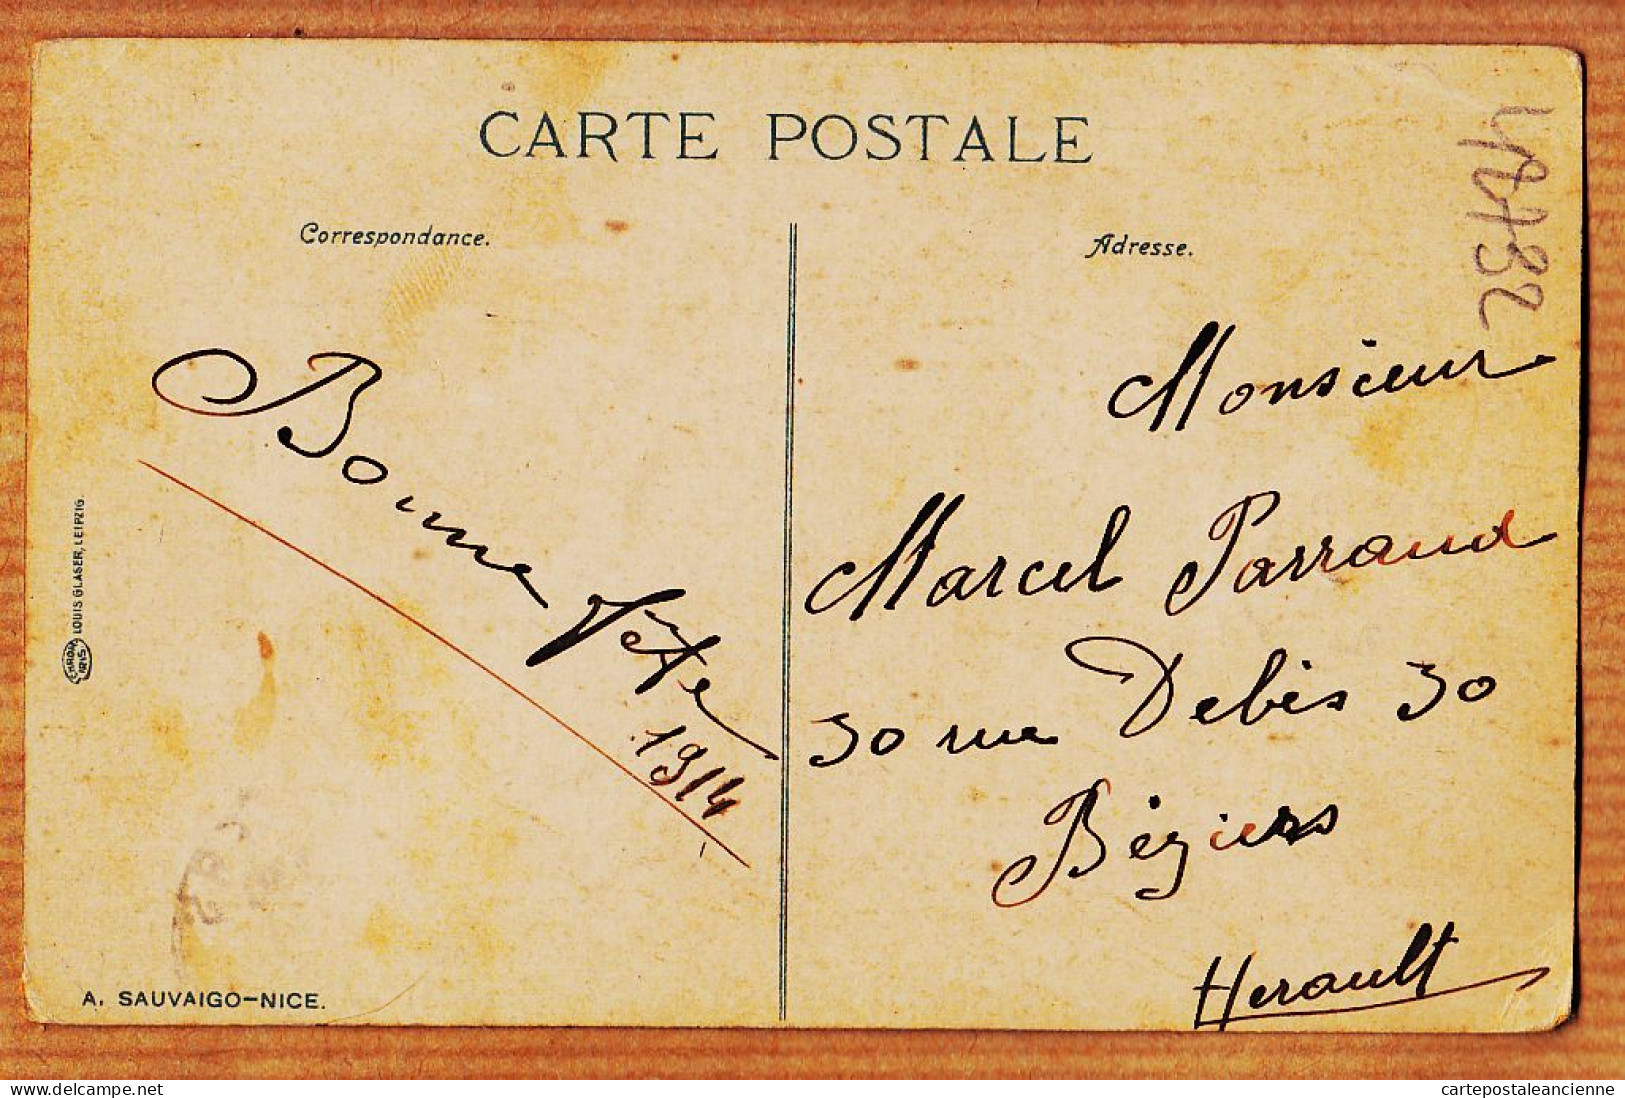 CARTE POSTALE
Correspondance.
Adresse.
Bonne fête
1914
Monsieur
Marcel Parraud
30 rue Debès 30
Béziers
Herault
CHROM
IRIS
LOUIS GLASER, LEIPZIG.
A. SAUVAIGO-NICE.
delcampe.net
cartepostaleancienne